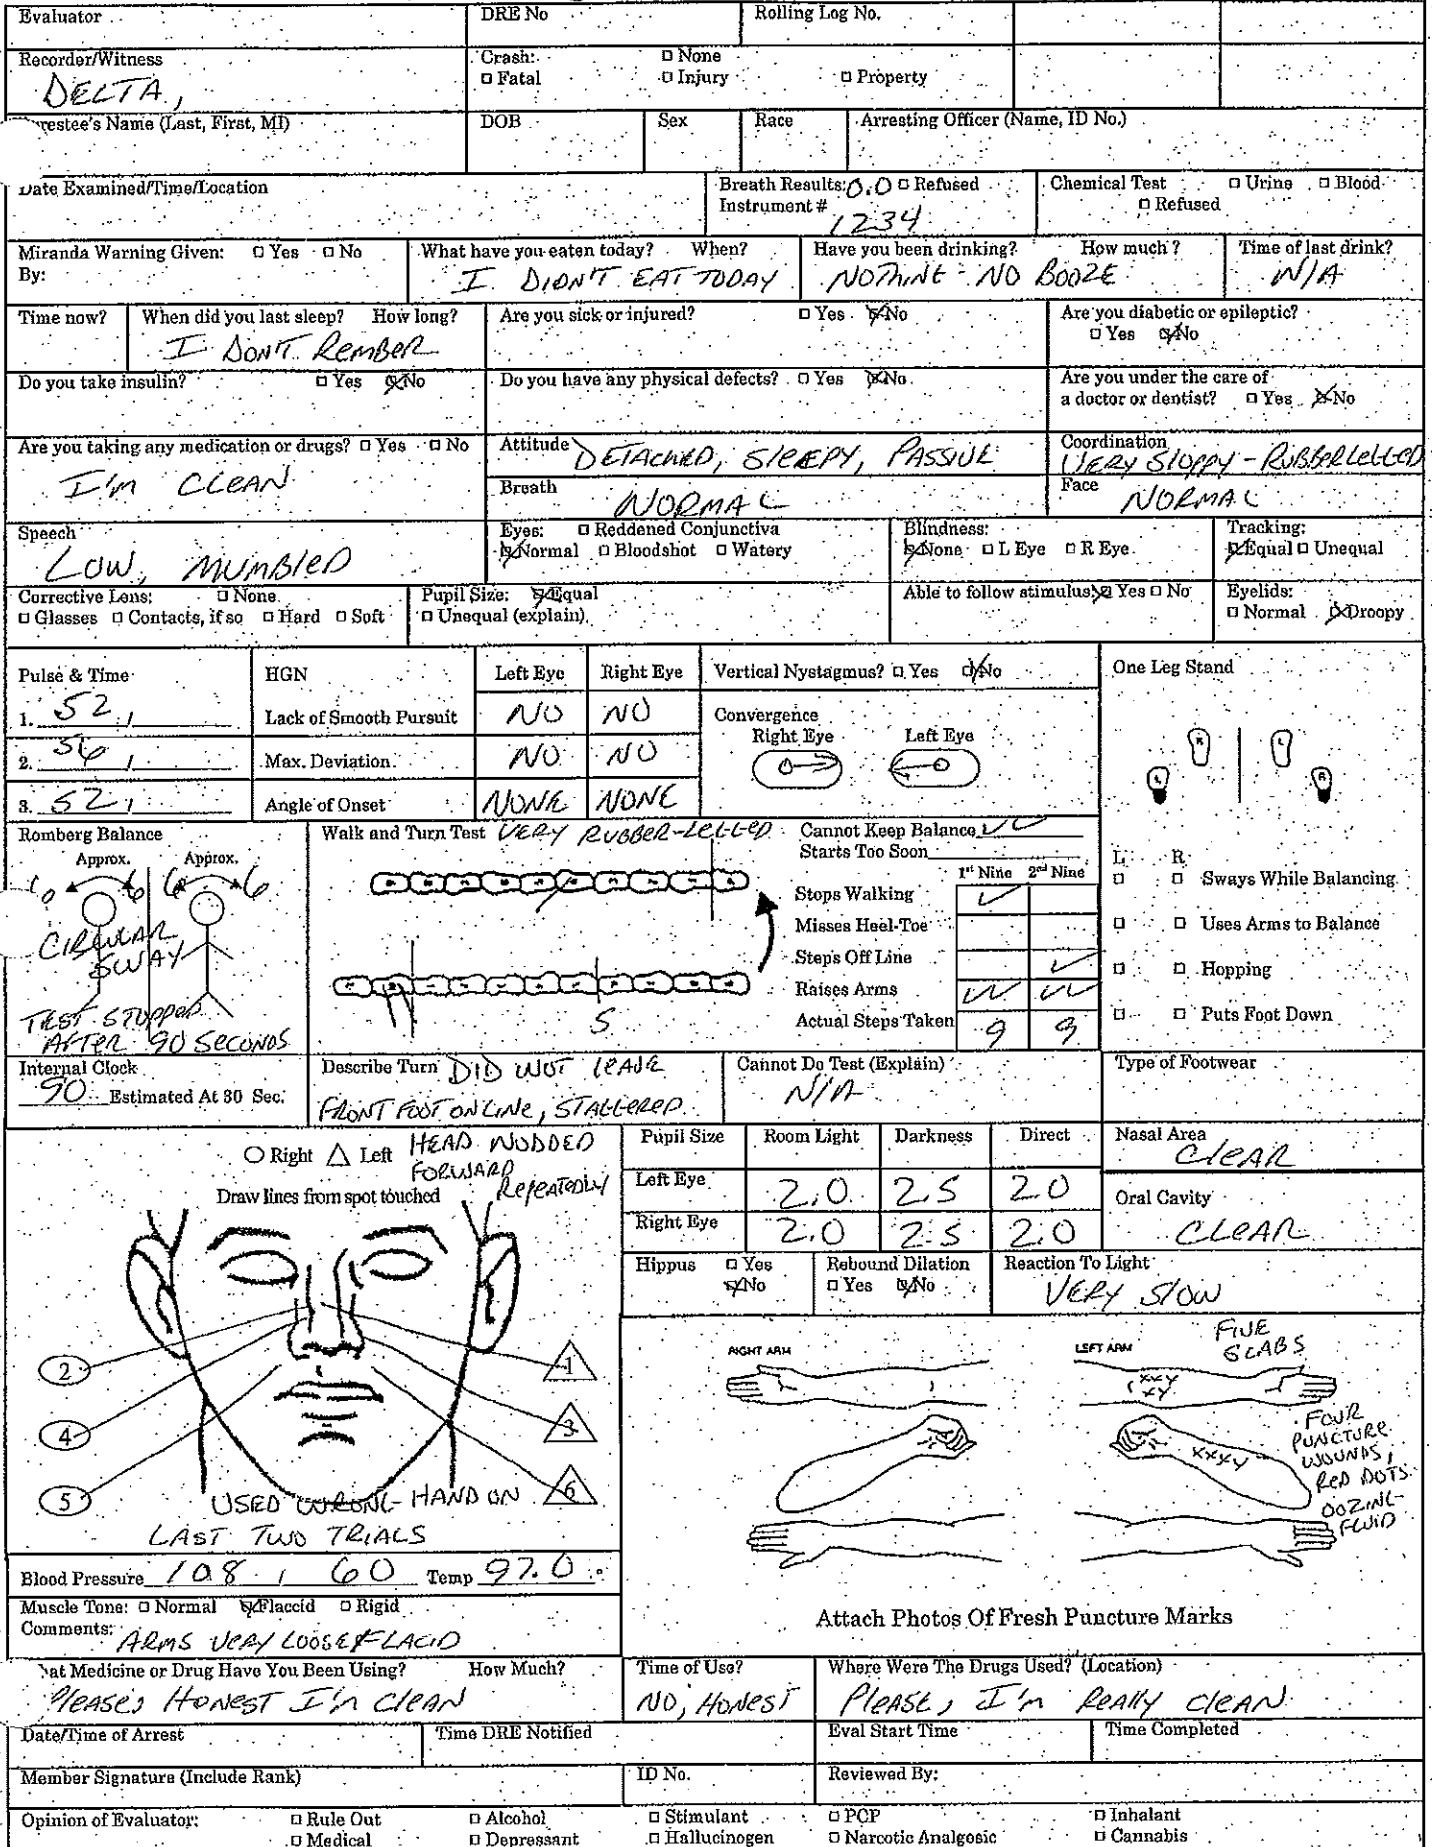 Evaluator
DRE No
Rolling Log No.
Recorder/Witness
DELTA,
Crash: □ None
□ Fatal □ Injury □ Property
restee's Name (Last, First, MI)
DOB
Sex
Race
Arresting Officer (Name, ID No.)
Date Examined/Time/Location
Breath Results: 0.0 □ Refused
Instrument # 1234
Chemical Test □ Urine □ Blood
□ Refused
Miranda Warning Given: □ Yes □ No
By:
What have you eaten today? When?
I DIDN'T EAT TODAY
Have you been drinking? How much?
NOTHING - NO BOOZE
Time of last drink?
N/A
Time now?
When did you last sleep? How long?
I DON'T REMBER
Are you sick or injured? □ Yes ☒ No
Are you diabetic or epileptic?
□ Yes ☒ No
Do you take insulin? □ Yes ☒ No
Do you have any physical defects? □ Yes ☒ No.
Are you under the care of
a doctor or dentist? □ Yes ☒ No
Are you taking any medication or drugs? □ Yes □ No
I'M CLEAN
Attitude DETACHED, SLEEPY, PASSIVE
Coordination
VERY SLOPPY - RUBBER LEGGED
Breath
NORMAL
Face
NORMAL
Speech
LOW, MUMBLED
Eyes: □ Reddened Conjunctiva
☒ Normal □ Bloodshot □ Watery
Blindness:
☒ None □ L Eye □ R Eye
Tracking:
☒ Equal □ Unequal
Corrective Lens: □ None
□ Glasses □ Contacts, if so □ Hard □ Soft
Pupil Size: ☒ Equal
□ Unequal (explain)
Able to follow stimulus ☒ Yes □ No
Eyelids:
□ Normal ☒ Droopy
Pulse & Time
1. 52,
2. 56,
3. 52,
HGN Left Eye Right Eye
Lack of Smooth Pursuit NO NO
Max. Deviation NO NO
Angle of Onset NONE NONE
Vertical Nystagmus? □ Yes ☒ No
Convergence
Right Eye Left Eye
One Leg Stand
R L
L R
Romberg Balance
Approx. Approx.
6 6 6 6
CIRCULAR
SWAY
TEST STOPPED
AFTER 90 SECONDS
Walk and Turn Test VERY RUBBER-LEGGED
S
Cannot Keep Balance ✓✓
Starts Too Soon
1st Nine 2nd Nine
Stops Walking ✓
Misses Heel-Toe
Steps Off Line ✓
Raises Arms ✓✓ ✓✓
Actual Steps Taken 9 9
L R
□ □ Sways While Balancing
□ □ Uses Arms to Balance
□ □ Hopping
□ □ Puts Foot Down
Internal Clock
90 Estimated At 30 Sec.
Describe Turn DID NOT LEAVE
FRONT FOOT ON LINE, STAGGERED
Cannot Do Test (Explain)
N/A
Type of Footwear
○ Right △ Left
HEAD NODDED
FORWARD
REPEATEDLY
Draw lines from spot touched
2
1
4
3
5
6
USED WRONG HAND ON
LAST TWO TRIALS
Pupil Size Room Light Darkness Direct
Left Eye 2.0 2.5 2.0
Right Eye 2.0 2.5 2.0
Nasal Area
CLEAR
Oral Cavity
CLEAR
Hippus □ Yes
☒ No
Rebound Dilation
□ Yes ☒ No
Reaction To Light
VERY SLOW
RIGHT ARM
LEFT ARM
FIVE
SCABS
FOUR
PUNCTURE
WOUNDS,
RED DOTS
OOZING
FLUID
Attach Photos Of Fresh Puncture Marks
Blood Pressure 108 / 60 Temp 97.0 °
Muscle Tone: □ Normal ☒ Flaccid □ Rigid
Comments: ARMS VERY LOOSE & FLACID
at Medicine or Drug Have You Been Using? How Much?
PLEASE, HONEST I'M CLEAN
Time of Use?
NO, HONEST
Where Were The Drugs Used? (Location)
PLEASE, I'M REALLY CLEAN
Date/Time of Arrest
Time DRE Notified
Eval Start Time
Time Completed
Member Signature (Include Rank)
ID No.
Reviewed By:
Opinion of Evaluator: □ Rule Out □ Alcohol □ Stimulant □ PCP □ Inhalant
□ Medical □ Depressant □ Hallucinogen □ Narcotic Analgesic □ Cannabis